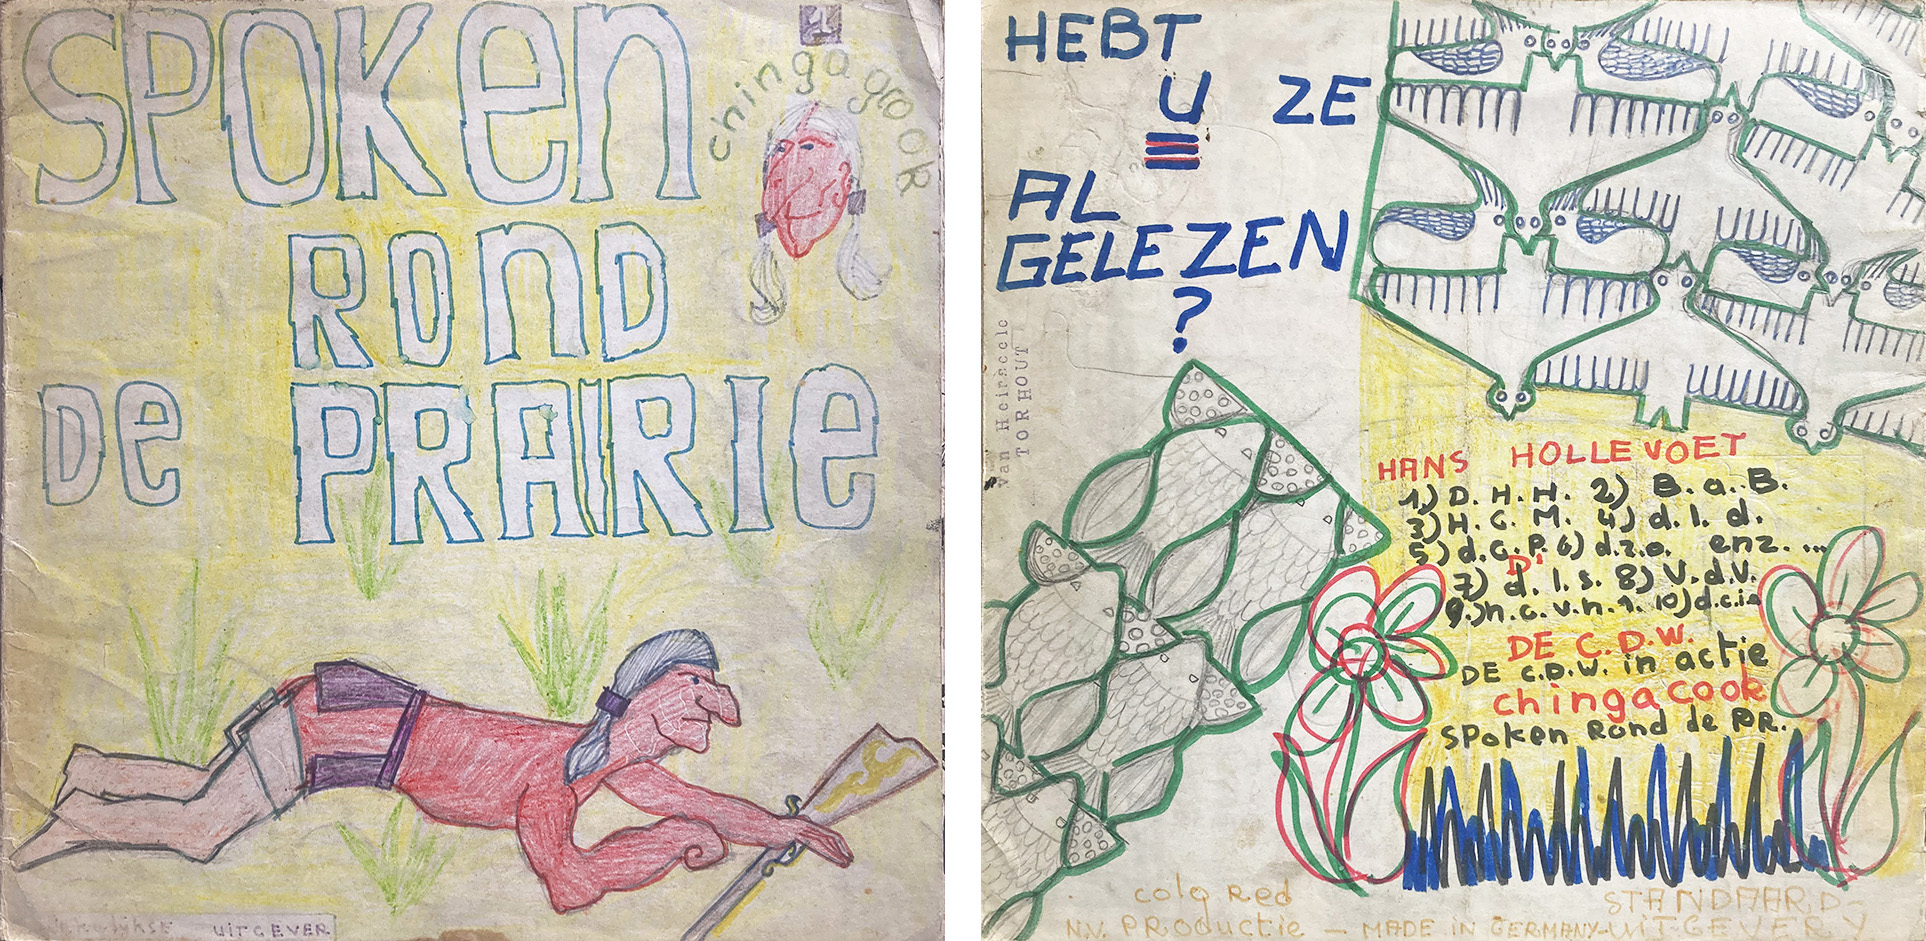 SPOKEN
1
chingagrook
ROND
DE PRARIE
UITGEVER
HEBT
U ZE
AL
GELEZEN
?
Van Heirseele
TORHOUT
HANS HOLLEVOET
1) D. H. H. 2) B. a. B.
3) H. G. M. 4) d. l. d.
5) d. G. P. 6) d.z.o. enz. ...
7) d. l. s. 8) V. d. V.
9.) n. G. v. n. 1. 10) d.c.i.a
DE C.D.W.
DE C.D.W. in actie
chingacook
SPOKEN Rond de PR.
cola Red
N.V. PRODUCTIE — MADE IN GERMANY-
STANDAARD-
UITGEVERY